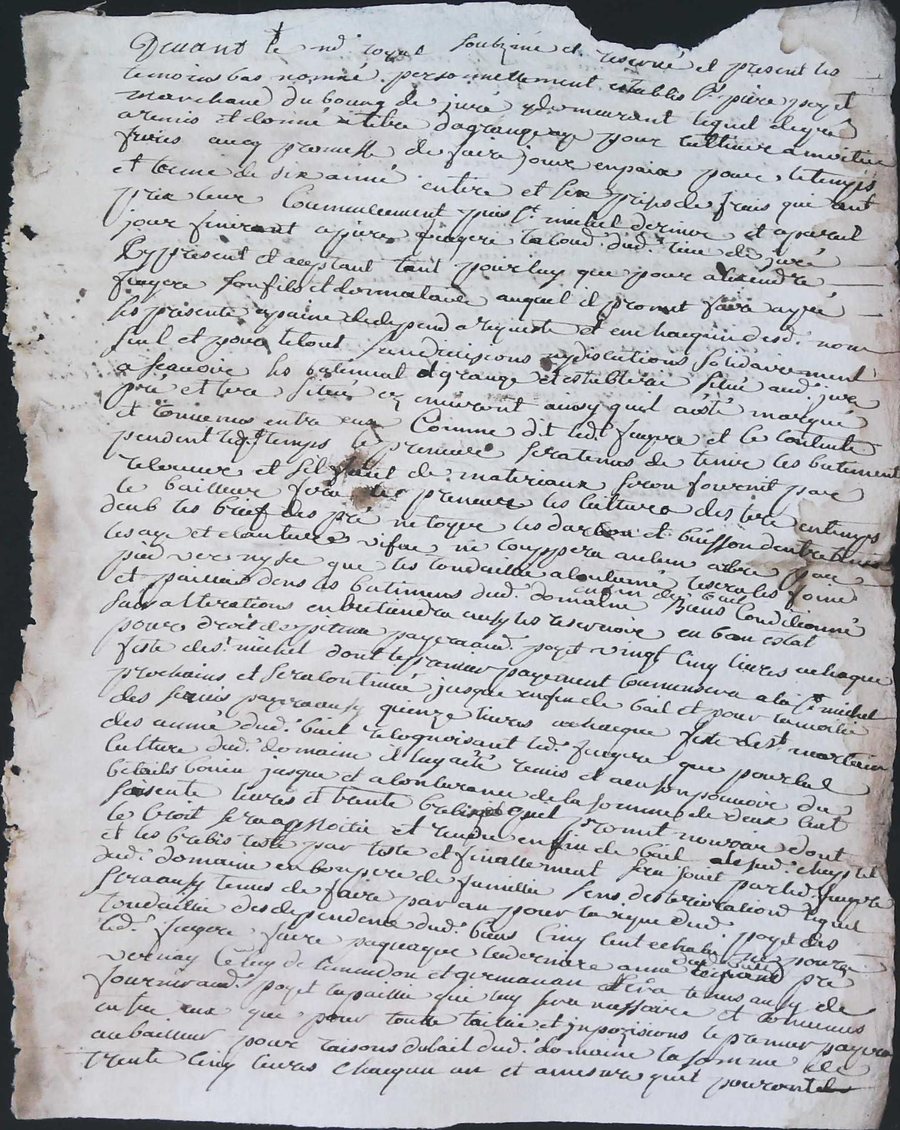 Devant le no.re royal soubziné et reservé et present les
temoins bas nommé personnellement establis s.r pière poyet
marchand du bourg de juré y demeurant lequel de gré
a remis et donné a titre de grangeage pour cultiver a moitié
fruis avec promesse de faire jouir en paix pour le temps
et terme de six année entiere et six prises de frais que ont
pris leur commencement puis s.t michel dernier et a pareil
jour finiront a pière fugere laboud. dud. lieu de juré
Ey present et aceptant tant pour luy que pour alexandre
fugere son fils et donnataire auquel il promet faire agreé
les presente a paine de depend a requeste et en chacquin desd. nom
seul et pour le tout sans divisions ny disicutions solidairement
a scavoir les batiment et grange et establerie situé aud. juré
pré et tere situés es environt ainsy quil a esté marqué
et convenus entre eux comme dit led.t fugere et le contente
pendent led.t temps le preneur sera tenus de tenir les batiment
recouvert et s'il faut de materiaux seron fournit par
le bailleur fera les preneur les culture des tere en temps
deub les bref des pré netoyer les darbon et buisson dentre tenir
les aye et clauture vifve ne couppera aucun arbre par
pied ver ny sec que les tondaille acoutumé reserales foint
et pailliet dens les batiments dud. domaine en fin de bail Biens Conditionné
sans alterations en bretendra aussy les reservoir en bon estat
pour droit despitene payera aud. poyet vingt cinq livres echaque
feste de s.t michel dont le premier payement commensera a la s.t michel
prochains et sera continué jusque en fin de bail et pour la moitié
des senis payera aussy quinze livres a chacque feste de s.t martin
des année dud. bail recognoisant led. fugere que pour la
culture dud. domaine il luy a été remis et a en son pouvoir du
betails bovin jusque et a concurance de la somme de deux cent
soisente livres et trente brebis quil promet nourir dont
le croit sera a moitié et rendre en fin de bail led. cheptel
et les brebis teste par teste et finallement sera jouit par led. fugere
dud. domaine en bon pere de famillie sens desterioration lequel
sera aussy tenus de faire par an pour la vigne dud. poyet des
tondaillie des dependene dud. biens cinq cent echalas pourra
led. fugere faire paquager la derniere anné du present pré
vernay celuy de et germanan et sera tenus aussy de
fournir aud. poyet la paillie que luy sera nessaire et convenus
entre eux que pour toute tailie et inpozisions le premier payera
au bailleur pour raisons du bail dud. domaine la somme de
trente cinq livres chacquin an et a mesure quil pouront